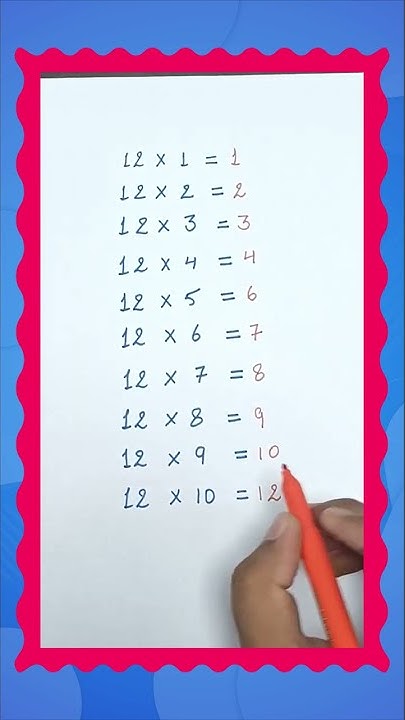 12 × 1 = 1
12 × 2 = 2
12 × 3 = 3
12 × 4 = 4
12 × 5 = 6
12 × 6 = 7
12 × 7 = 8
12 × 8 = 9
12 × 9 = 10
12 × 10 = 12